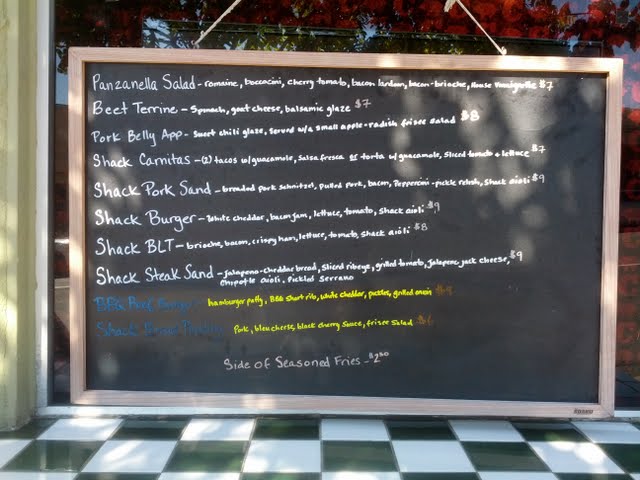 Panzanella Salad - romaine, boccocini, cherry tomato, bacon lardons, bacon-brioche, House Vinaigrette $7
Beet Terrine - Spinach, goat cheese, balsamic glaze $7
Pork Belly App - Sweet chili glaze, Served w/a small apple-radish frisee salad $8
Shack Carnitas - (2) tacos w/guacamole, Salsa fresca or torta w/guacamole, Sliced tomato & lettuce $7
Shack Pork Sand - breaded pork schnitzel, pulled pork, bacon, Pepperoncini-pickle relish, Shack aioli $9
Shack Burger - White cheddar, bacon jam, lettuce, tomato, Shack aioli $9
Shack BLT - brioche, bacon, crispy ham, lettuce, tomato, Shack aioli $8
Shack Steak Sand - Jalapeno-cheddar bread, Sliced ribeye, grilled tomato, Jalapeno jack cheese, $9
Chipotle aioli, Pickled Serrano
BBQ Beef Burger - hamburger patty, BBQ Short rib, White Cheddar, pickles, grilled onion $9
Shack Pork, bleu cheese, black cherry Sauce, frisee Salad $6
Side of Seasoned Fries - $2.00